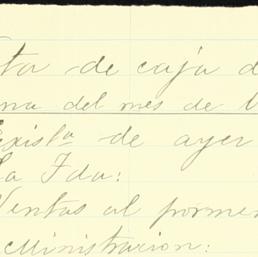 ta de caja d
na del mes de
Exist.ª de ayer
La Fda:
Ventas al pormen
ministracion: